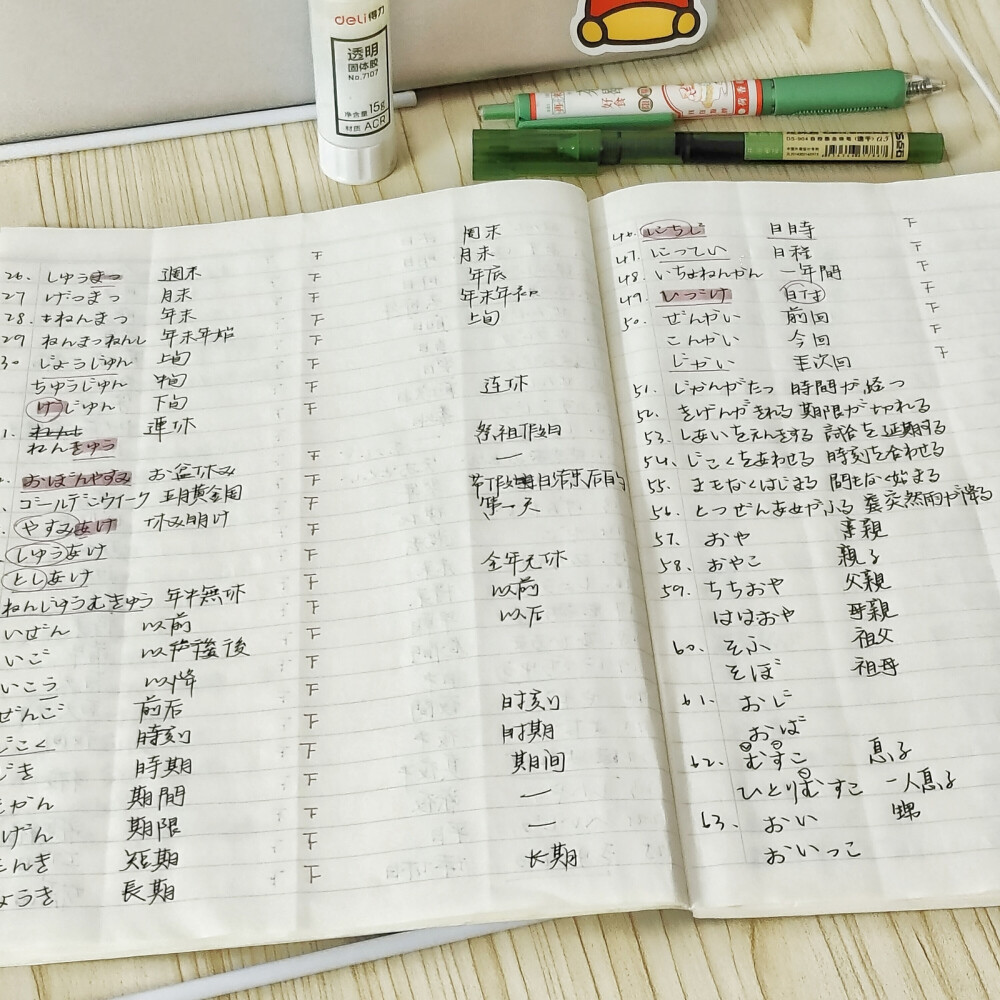 deli 得力
透明
固体胶
No.7107
净含量 15g
材质 ACR
好食
26. しゅうまつ 週末 下 周末
27 げつまつ 月末 下 月末
28. ねんまつ 年末 下 年底
29 ねんまつねんし 年末年始 下 年末年初
30 じょうじゅん 上旬 下 上旬
ちゅうじゅん 中旬 下
げじゅん 下旬 下
1. 連休 下 连休
れんきゅう
おぼんやすみ お盆休み 下 祭祖
ゴールデンウイーク 五月黄金周 下 一
やすみあけ 休み明け 下 节作日结束后的
しゅうあけ 下 第一天
としあけ 下
ねんじゅうむきゅう 年中無休 下 全年无休
いぜん 以前 下 以前
いご 以後 下 以后
いこう 以降 下
ぜんご 前后 下
じこく 時刻 下 时刻
じき 時期 下 时期
きかん 期間 下 期间
げん 期限 下 一
たんき 短期 下 一
ょうき 長期 下 长期
46. にちじ 日時 下
47. にってい 日程 下
48. いちねんかん 一年間 下
49 ひづけ 日付 下
50. ぜんかい 前回 下
こんかい 今回 下
じかい 次回 下
51. じかんがたつ 時間が経つ
52. きげんがきれる 期限が切れる
53. しあいをえんきする 試合を延期する
54. じこくをあわせる 時刻を合わせる
55. まもなくはじまる 間もなく始まる
56. とつぜんあめがふる 突然雨が降る
57. おや 親
58. おやこ 親子
59. ちちおや 父親
ははおや 母親
60. そふ 祖父
そぼ 祖母
61. おじ
おば
62. むすこ 息子
ひとりむすこ 一人息子
63. おい 甥
おいっこ